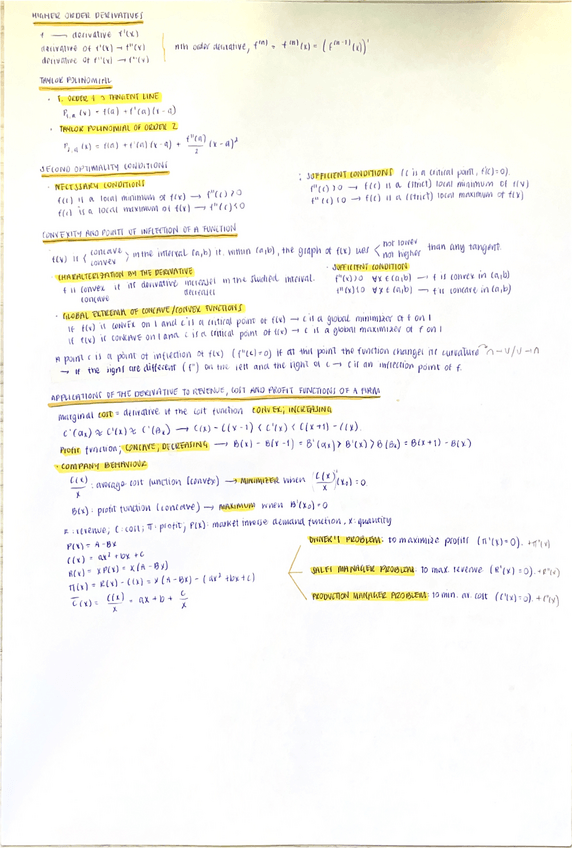 HIGHER ORDER DERIVATIVES
f → derivative f'(x)
derivative of f'(x) → f''(x)
derivative of f''(x) → f'''(x)
nth order derivative, f⁽ⁿ⁾ = f⁽ⁿ⁾(x) = (f⁽ⁿ⁻¹⁾(x))'
TAYLOR POLINOMIAL
· T. ORDER 1 → TANGENT LINE
P₁,ₐ(x) = f(a) + f'(a)(x-a)
· TAYLOR POLINOMIAL OF ORDER 2
P₂,ₐ(x) = f(a) + f'(a)(x-a) + f''(a)/2 (x-a)²
SECOND OPTIMALITY CONDITIONS
· NECESSARY CONDITIONS
f(c) is a local minimum of f(x) → f''(c) ≥ 0
f(c) is a local maximum of f(x) → f''(c) ≤ 0
· SUFFICIENT CONDITIONS (c is a critical point, f'(c)=0)
f''(c) > 0 → f(c) is a (strict) local minimum of f(x)
f''(c) < 0 → f(c) is a (strict) local maximum of f(x)
CONVEXITY AND POINTS OF INFLECTION OF A FUNCTION
f(x) is concave / convex in the interval (a,b) if, within (a,b), the graph of f(x) lies not lower / not higher than any tangent.
· CHARACTERIZATION BY THE DERIVATIVE
f is convex if its derivative increases in the studied interval.
concave decreases
· SUFFICIENT CONDITION
f''(x) > 0 ∀x ∈ (a,b) → f is convex in (a,b)
f''(x) < 0 ∀x ∈ (a,b) → f is concave in (a,b)
· GLOBAL EXTREMA OF CONCAVE/CONVEX FUNCTIONS
If f(x) is convex on I and c is a critical point of f(x) → c is a global minimizer of f on I
If f(x) is concave on I and c is a critical point of f(x) → c is a global maximizer of f on I
A point c is a point of inflection of f(x) (f''(c)=0) if at this point the function changes its curvature ∩→∪/∪→∩
→ If the signs are different (f'') on the left and the right of c → c is an inflection point of f.
APPLICATIONS OF THE DERIVATIVE TO REVENUE, COST AND PROFIT FUNCTIONS OF A FIRM
marginal cost = derivative of the cost function CONVEX; INCREASING
C'(αₓ) ≈ C'(x) ≈ C'(βₓ) → C(x) - C(x-1) < C'(x) < C(x+1) - C(x).
Profit function; CONCAVE; DECREASING → B(x) - B(x-1) = B'(αₓ) > B'(x) > B'(βₓ) = B(x+1) - B(x)
· COMPANY BEHAVIOUR
C(x)/x : average cost function (convex) → MINIMIZER when (C(x)/x)'(x₀) = 0
B(x): profit function (concave) → MAXIMUM when B'(x₀) = 0
R: revenue; C: cost; π: profit; P(x): market inverse demand function, x: quantity
P(x) = A - Bx
C(x) = ax² + bx + c
R(x) = xP(x) = x(A - Bx)
π(x) = R(x) - C(x) = x(A - Bx) - (ax² + bx + c)
C̄(x) = C(x)/x = ax + b + c/x
OWNER'S PROBLEM: to maximize profits (π'(x)=0). + π''(x)
SALES MANAGER PROBLEM: to max. revenue (R'(x)=0). + R''(x)
PRODUCTION MANAGER PROBLEM: to min. av. cost (C̄'(x)=0). + C̄''(x)